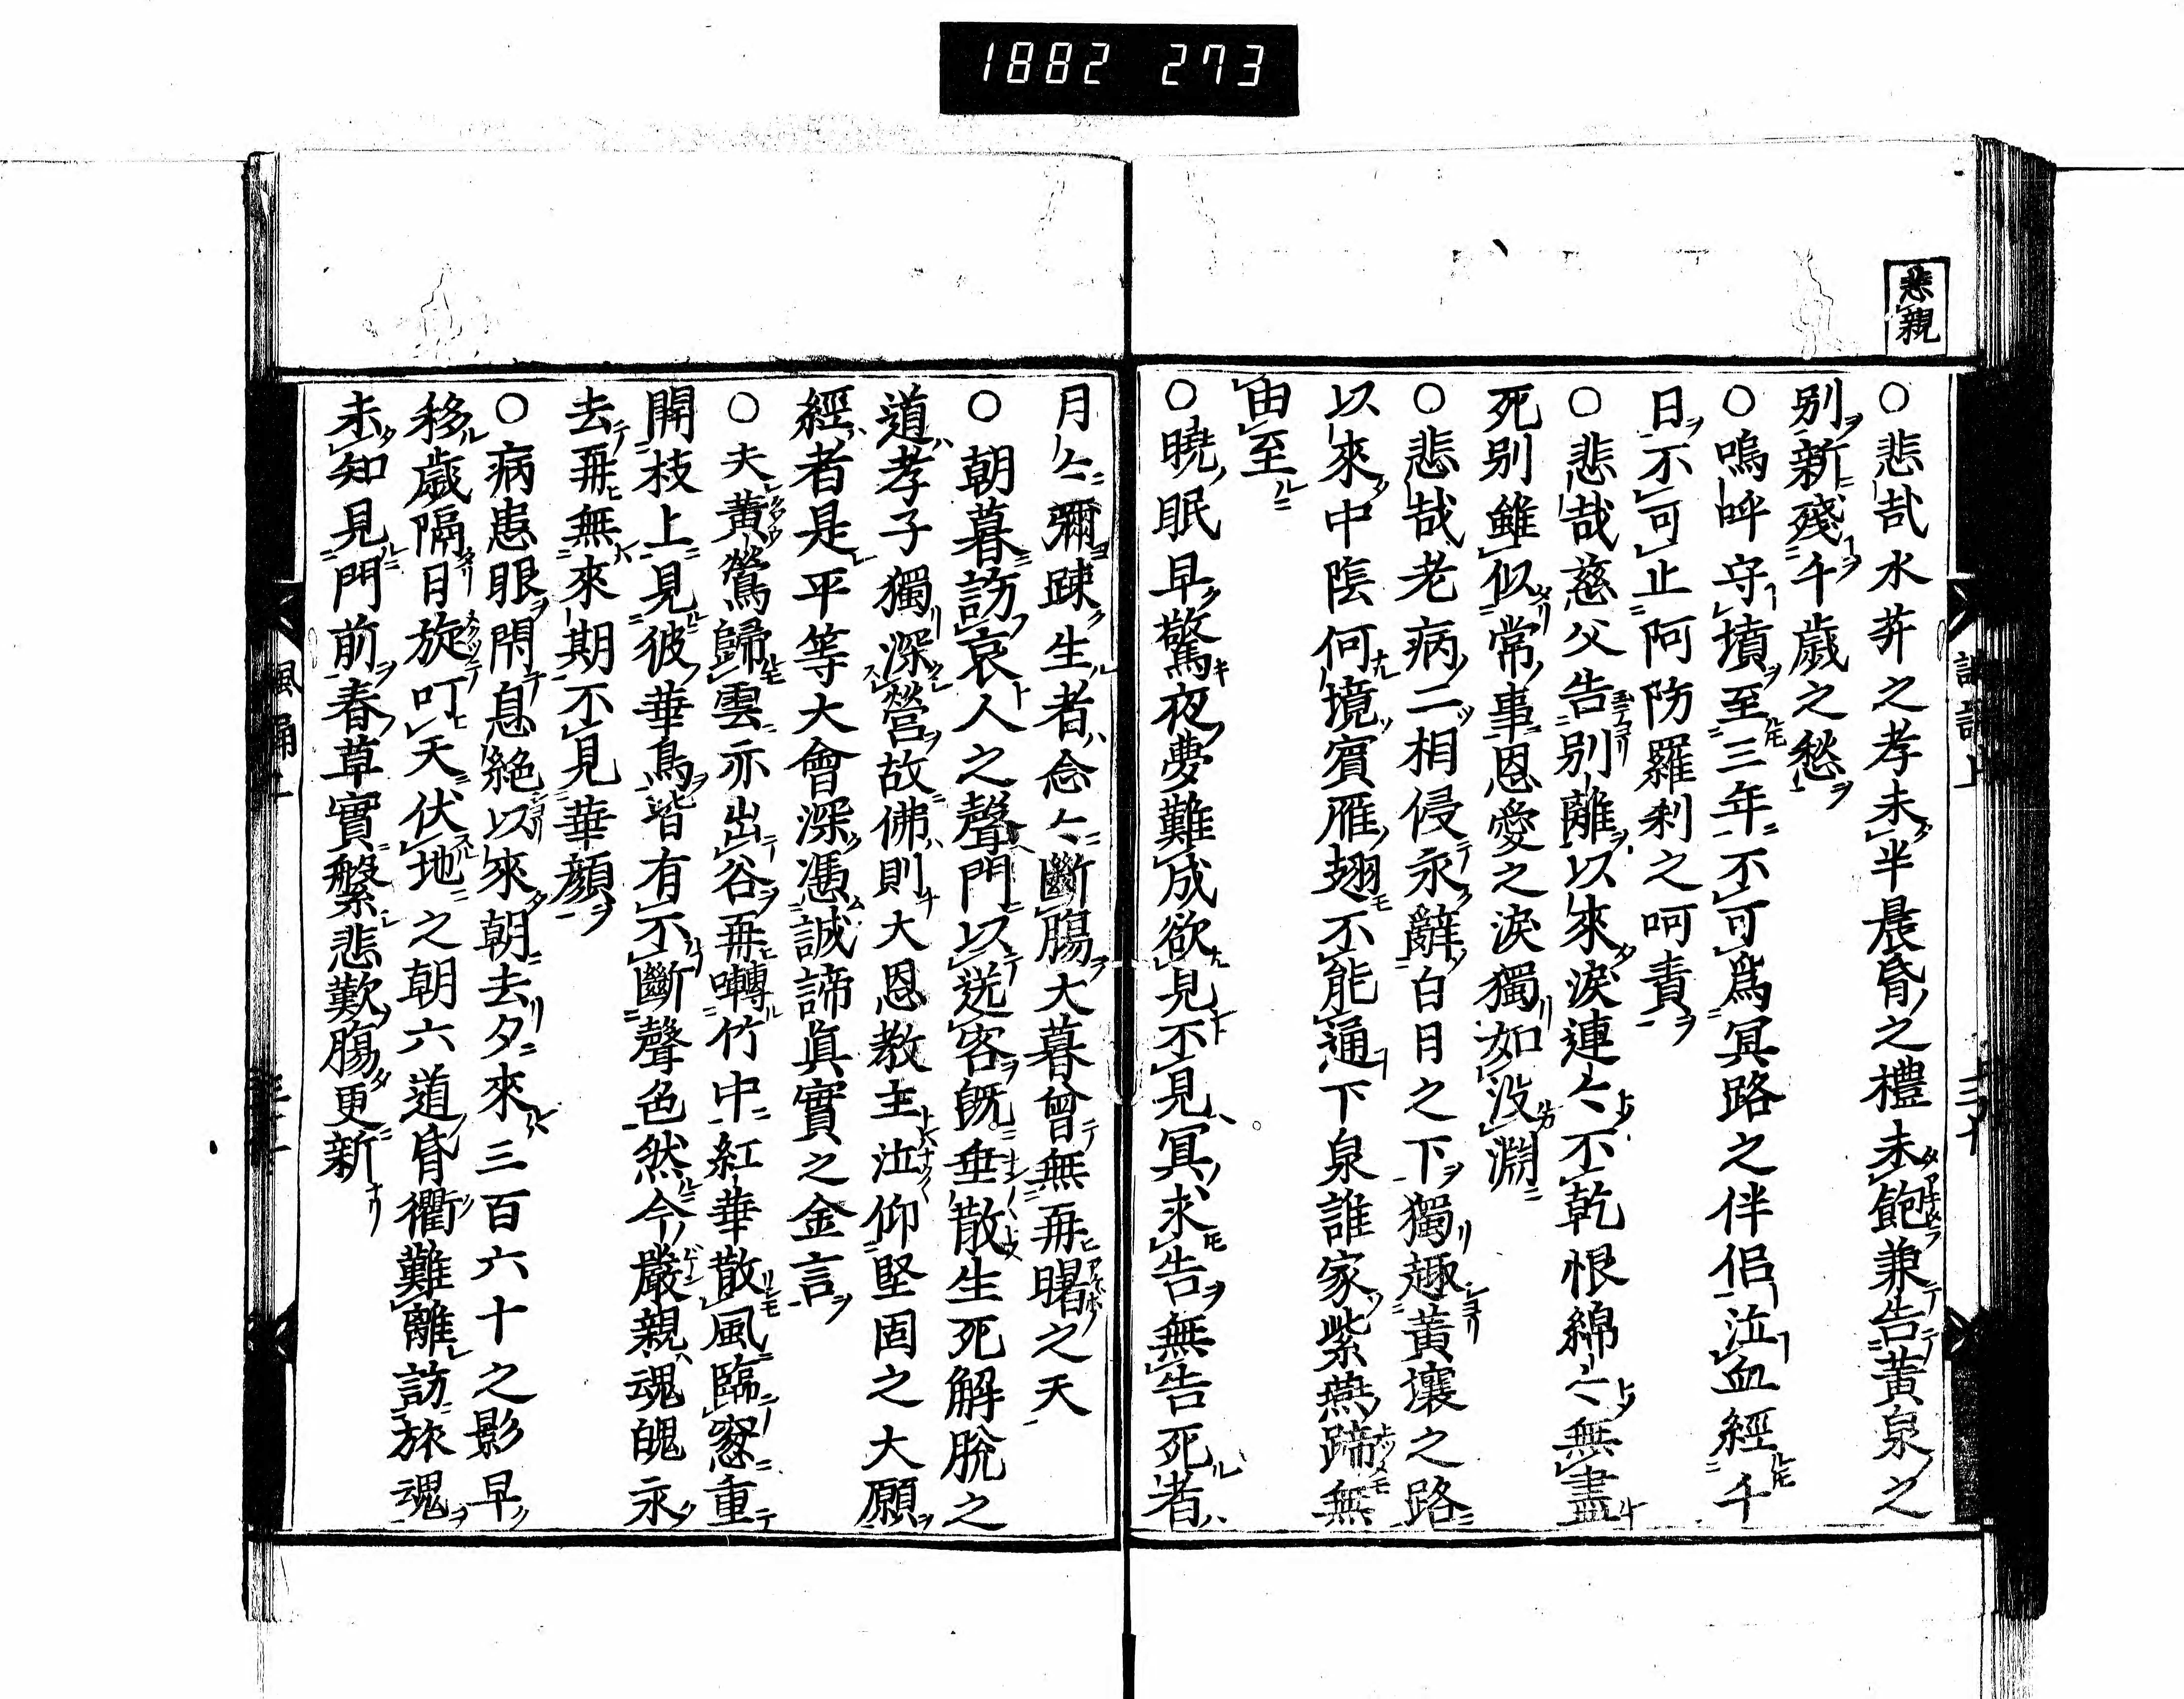 1882 273
悲親
○悲哉水菽之孝未半晨昏之禮未飽兼告黃泉之
別新殘千歲之愁
○嗚呼守墳至三年不可爲冥路之伴侶泣血經千
日不可止阿防羅刹之呵責
○悲哉慈父告別離以來淚連〻不乾恨綿〻無盡
死別雖似常事恩愛之淚獨如沒淵
○悲哉老病二相侵永辭白日之下獨趣黃壤之路
以來中陰何境賓雁翅不能通下泉誰家紫燕蹄無
由至
○曉眠早驚夜夢難成欲見不見冥求告無告死者
月〻彌踈生者念〻斷腸大暮曾無再曙之天
○朝暮訪哀人之聲門以送客旣垂散生死解脫之
道孝子獨深營故佛則大恩敎主泣仰堅固之大願
經者是平等大會深憑誠諦眞實之金言
○夫黃鶯歸雲亦出谷再囀竹中紅華散風臨窓重
開枝上見彼華鳥皆有不斷聲色然今嚴親魂魄永
去再無來期不見華顏
○病患眼閇息絕以來朝去夕來三百六十之影早
移歲隔月旋叮天伏地之朝六道昏衢難離訪旅魂
未知見門前春草實繫悲歎腸更新